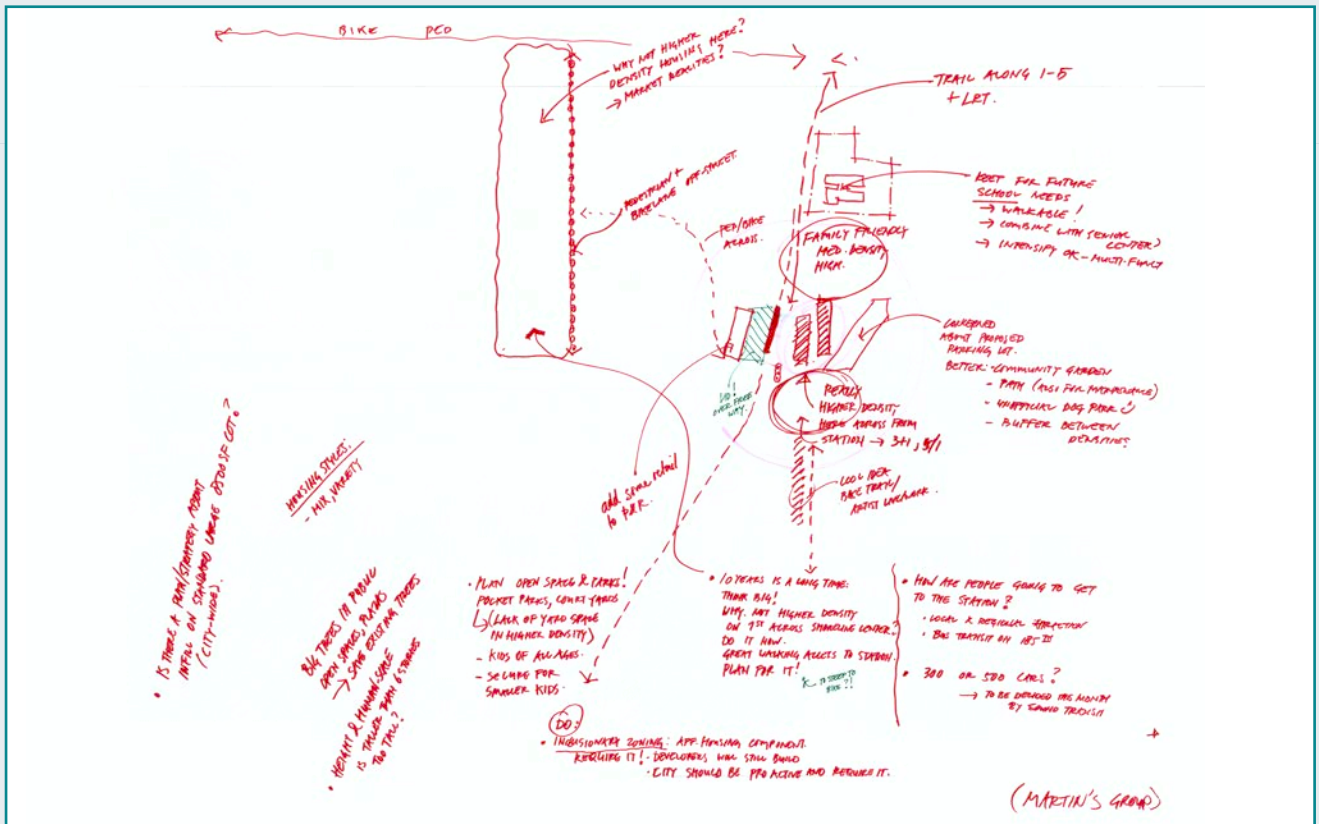 BIKE PED
WHY NOT HIGHER
DENSITY HOUSING HERE?
→ MARKET REALITIES?
TRAIL ALONG I-5
+ LRT.
PEDESTRIAN +
BIKELANE OFF-STREET.
PED/BIKE
ACROSS.
KEEP FOR FUTURE
SCHOOL NEEDS
→ WALKABLE!
→ COMBINE WITH SENIOR
CENTER?
→ INTENSIFY OK - MULTI-FUNCT
FAMILY FRIENDLY
MED. DENSITY
HIGH.
CONCERNED
ABOUT PROPOSED
PARKING LOT.
BETTER: - COMMUNITY GARDEN
- PATH (ALSO FOR MAINTENANCE)
- UNOFFICIAL DOG PARK
- BUFFER BETWEEN
DENSITIES
LID!
OVER FREE
WAY.
REALLY
HIGHER DENSITY
HERE ACROSS FROM
STATION → 3+1, 5/1
COOL IDEA
BIKE TRAIL/
ARTIST LIVE/WORK.
add some retail
to P&R.
• IS THERE A PLAN/STRATEGY ABOUT
INFILL ON STANDARD LARGE 8500 SF LOT?
(CITY-WIDE).
HOUSING STYLES:
- MIX, VARIETY
BIG TREES IN PUBLIC
OPEN SPACES, PLAZAS
→ SAVE EXISTING TREES
• HEIGHT & HUMAN SCALE
IS TALLER THAN 6 STORIES
TOO TALL?
• PLAN OPEN SPACE & PARKS!
POCKET PARKS, COURT YARDS
(LACK OF YARD SPACE
IN HIGHER DENSITY)
- KIDS OF ALL AGES.
- SECURE FOR
SMALLER KIDS.
• 10 YEARS IS A LONG TIME:
THINK BIG!
WHY NOT HIGHER DENSITY
ON 1ST ACROSS SHORELINE CENTER?
DO IT NOW.
GREAT WALKING ACCESS TO STATION.
PLAN FOR IT!
TO STEEP TO
BIKE?!
• HOW ARE PEOPLE GOING TO GET
TO THE STATION?
• LOCAL & REGIONAL ATTRACTION
• BUS TRANSIT ON 185
• 300 OR 500 CARS?
→ TO BE DECIDED THIS MONTH
BY SOUND TRANSIT
DO:
• INCLUSIONARY ZONING: AFF. HOUSING COMPONENT.
REQUIRE IT! - DEVELOPERS WILL STILL BUILD
- CITY SHOULD BE PRO ACTIVE AND REQUIRE IT.
(MARTIN'S GROUP)